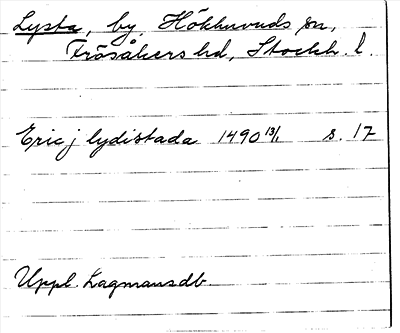 Lysta, by, Hökhuvuds sn,
Frösåkers hd, Stockh. l.
Eric j lydistada 1490 13/1 s. 17
Uppl. Lagmansdb.